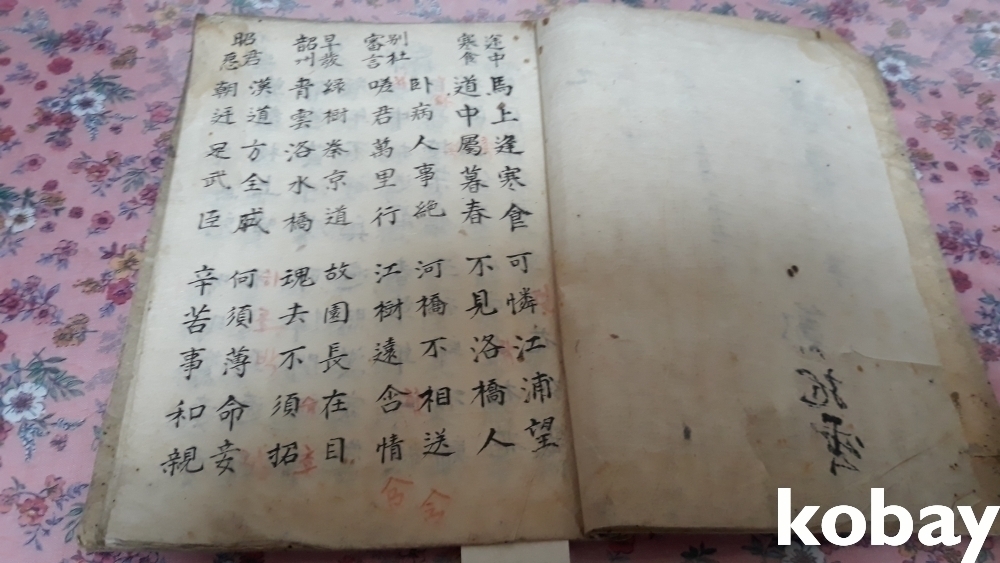 途中 馬上逢寒食 可憐江浦望
寒食 道中屬暮春 不見洛橋人
別杜 卧病人事絶 河橋不相送
審言 嗟君萬里行 江樹遠含情
早 綠樹秦京道 故園長在目
韶州 青雲洛水橋 魂去不須招
昭君 漢道方全盛 何須薄命妾
怨 朝廷足武臣 辛苦事和親
kobay